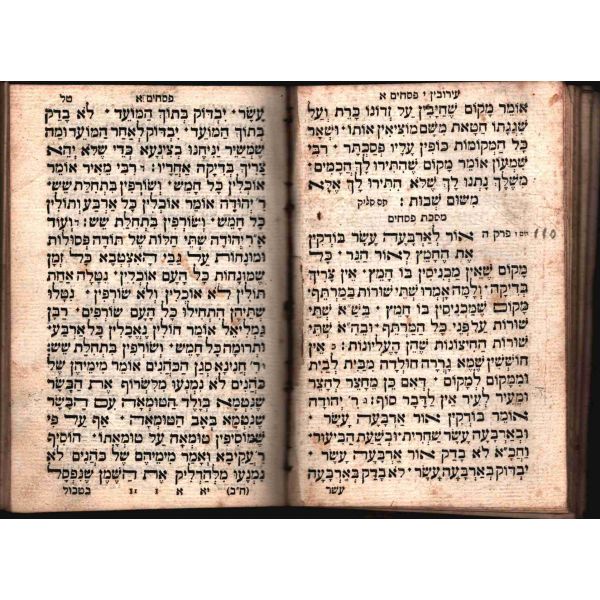 עירובין י פסחים א
אומר מקום שחייבין על זדונו כרת ועל
שגגתו חטאת משם מוציאין אותו ושאר
כל המקומות כופין עליו פסכתר רבי
שמעון אומר מקום שהתירו לך חכמים
משלך נתנו לך שלא התירו לך אלא
משום שבות :
מסכת פסחים
פרק ה אור לארבעה עשר בודקין 110
את החמץ לאור הנר כל
מקום שאין מכניסין בו חמץ אין צריך
בדיקה ולמה אמרו שתי שורות במרתף
מקום שמכניסין בו חמץ ב״ש א שתי
שורות על פני כל המרתף וב״ה א שתי
שורות החיצונות שהן העליונות : אין
חוששין שמא גררה חולדה מבית לבית
וממקום למקום דאם כן מחצר לחצר
ומעיר לעיר אין לדבר סוף ר׳ יהודה
אומר בודקין אור ארבעה עשר
ובארבעה עשר שחרית ובשעת הביעור
וחכ״א לא בדק אור ארבעה עשר
יבדוק בארבעה עשר לא בדק בארבעה
עשר
פסחים א טל
עשר יבדוק בתוך המועד לא בדק
בתוך המועד יבדוק לאחר המועד ומה
שמשייר יניחנו בצינעא כדי שלא יהא
צריך בדיקה אחריו : רבי מאיר אומר
אוכלין כל חמש ושורפין בתחלת שש
ר יהודה אומר אוכלין כל ארבע ותולין
כל חמש ושורפין בתחלת שש : ועוד
א״ר יהודה שתי חלות של תודה פסולות
ומונחות על גבי האצטבא כל זמן
שמונחות כל העם אוכלין נטלה אחת
תולין לא אוכלין ולא שורפין נטלו
שתיהן התחילו כל העם שורפים רבן
גמליאל אומר חולין נאכלין כל ארבע
ותרומה כל חמש ושורפין בתחלת שש :
ר׳ חנינא סגן הכהנים אומר מימיהן של
כהנים לא נמנעו מלשרוף את הבשר
שנטמא בולד הטומאה עם הבשר
שנטמא באב הטומאה אף על פי
שמוסיפין טומאה על טומאתו הוסיף
ר׳ עקיבא ואמר מימיהם של כהנים לא
נמנעו מלהדליק את השמן שנפסל
בטבול